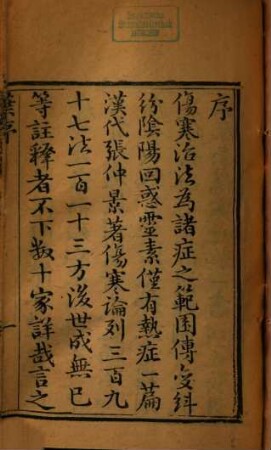 序
傷寒治法為諸症之範圍傳變糾
紛陰陽回惑靈素僅有熱症一篇
漢代張仲景著傷寒論列三百九
十七法一百一十三方後世成無巳
等註釋者不下數十家詳哉言之